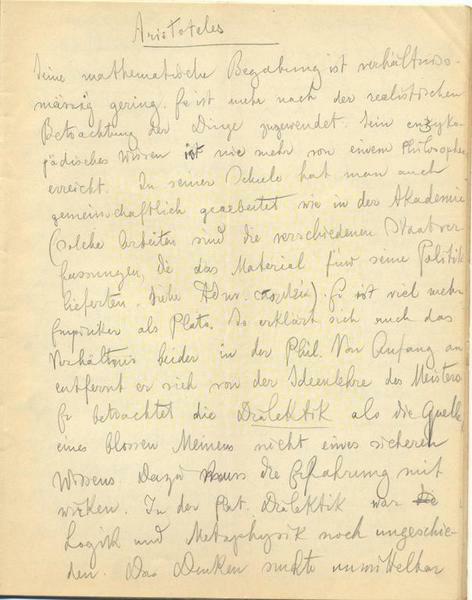 Aristoteles
Seine mathematische Begabung ist verhältniss-
mässig gering. Er ist mehr nach der realistischen
Betrachtung der Dinge zugewendet. Sein enzyklo-
pädisches Wissen ist nie mehr von einem Philosophen
erreicht. In seiner Schule hat man auch
gemeinschaftlich gearbeitet wie in der Akademie
(solche Arbeiten sind die verschiedenen Staatver-
fassungen, die das Material für seine Politik
lieferten. Siehe). Er ist viel mehr
Empiriker als Plato. So erklärt sich auch das
Verhältnis beider in der Phil. Von Anfang an
entfernt er sich von der Ideenlehre des Meisters
Er betrachtet die Dialektik als die Quelle
eines blossen Meinens nicht eines sicheren
Wissens. Dazu muss die Erfahrung mit
wirken. In der Plat. Dialektik war
Logik und Metaphysik noch ungeschie-
den. Das Denken suchte unmittelbar